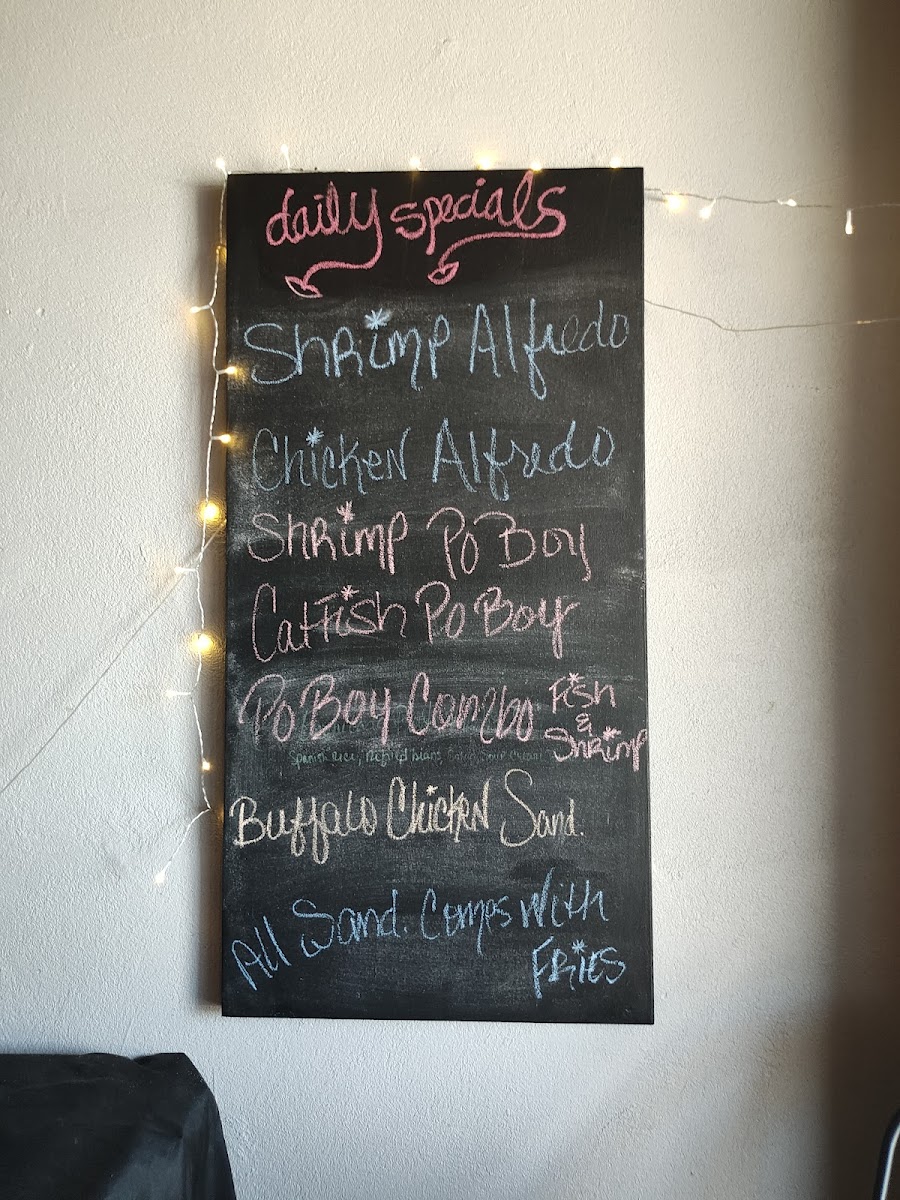 daily specials
Shrimp Alfredo
Chicken Alfredo
Shrimp Po Boy
Catfish Po Boy
Po Boy Combo Fish & Shrimp
Spanish rice, refried beans, salad, sour cream
Buffalo Chicken Sand.
All Sand. Comps With
Fries